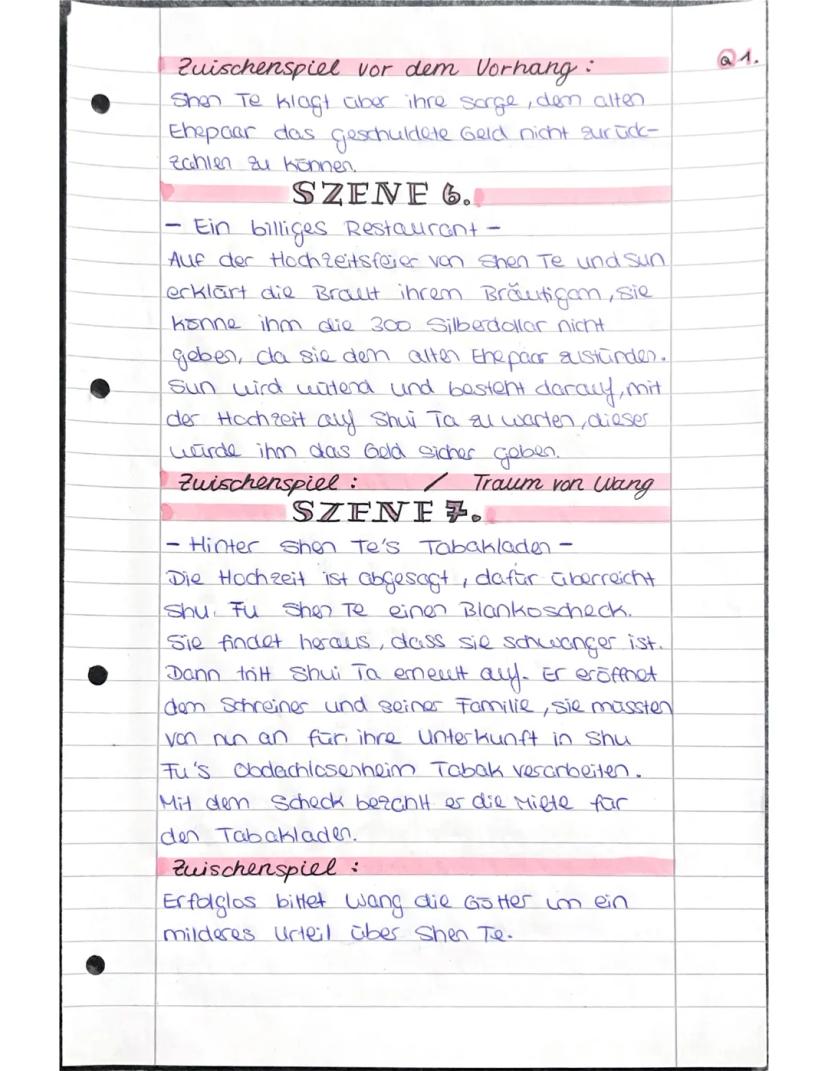 Q1.
Zwischenspiel vor dem Vorhang:
Shen Te klagt über ihre Sorge, dem alten
Ehepaar das geschuldete Geld nicht zurück-
zahlen zu können.
SZENE 6.
- Ein billiges Restaurant -
Auf der Hochzeitsfeier von Shen Te und Sun
erklärt die Braut ihrem Bräutigam, sie
könne ihm die 300 Silberdollar nicht
geben, da sie dem alten Ehepaar zustünden.
Sun wird wütend und besteht darauf, mit
der Hochzeit auf Shui Ta zu warten, dieser
würde ihm das Geld sicher geben.
Zwischenspiel: / Traum von Wang
SZENE 7.
- Hinter Shen Te's Tabakladen -
Die Hochzeit ist abgesagt, dafür überreicht
Shu Fu Shen Te einen Blankoscheck.
Sie findet heraus, dass sie schwanger ist.
Dann tritt Shui Ta erneut auf. Er eröffnet
dem Schreiner und seiner Familie, sie müssten
von nun an für ihre Unterkunft in Shu
Fu's Obdachlosenheim Tabak verarbeiten.
Mit dem Scheck bezahlt er die Miete für
den Tabakladen.
Zwischenspiel:
Erfolglos bittet Wang die Götter um ein
milderes Urteil über Shen Te.